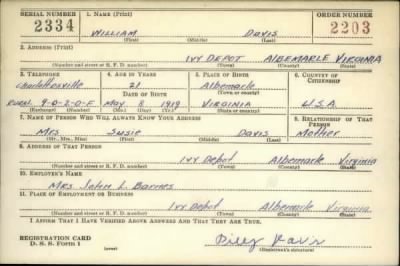 SERIAL NUMBER 1. NAME (Print) ORDER NUMBER
2334 WILLIAM DAVIS 2203
(First) (Middle) (Last)
2. ADDRESS (Print)
IVY DEPOT ALBEMARLE VIRGINIA
(Number and street or R. F. D. number) (Town) (County) (State)
3. TELEPHONE 4. AGE IN YEARS 5. PLACE OF BIRTH 6. COUNTRY OF CITIZENSHIP
Charlottesville 21 Albemarle
DATE OF BIRTH (Town or county)
Rural 9-0-2-0-F May 8 1919 VIRGINIA U.S.A.
(Exchange) (Number) (Mo.) (Day) (Yr.) (State or country)
7. NAME OF PERSON WHO WILL ALWAYS KNOW YOUR ADDRESS 8. RELATIONSHIP OF THAT PERSON
Mrs Susie Davis Mother
(Mr., Mrs., Miss) (First) (Middle) (Last)
9. ADDRESS OF THAT PERSON
Ivy Depot Albemarle Virginia
(Number and street or R. F. D. number) (Town) (County) (State)
10. EMPLOYER'S NAME
Mrs. John L. Barnes
11. PLACE OF EMPLOYMENT OR BUSINESS
Ivy Depot Albemarle Virginia
(Number and street or R. F. D. number) (Town) (County) (State)
I AFFIRM THAT I HAVE VERIFIED ABOVE ANSWERS AND THAT THEY ARE TRUE.
REGISTRATION CARD
D. S. S. Form 1 (over) Billy Davis
(Registrant's signature)